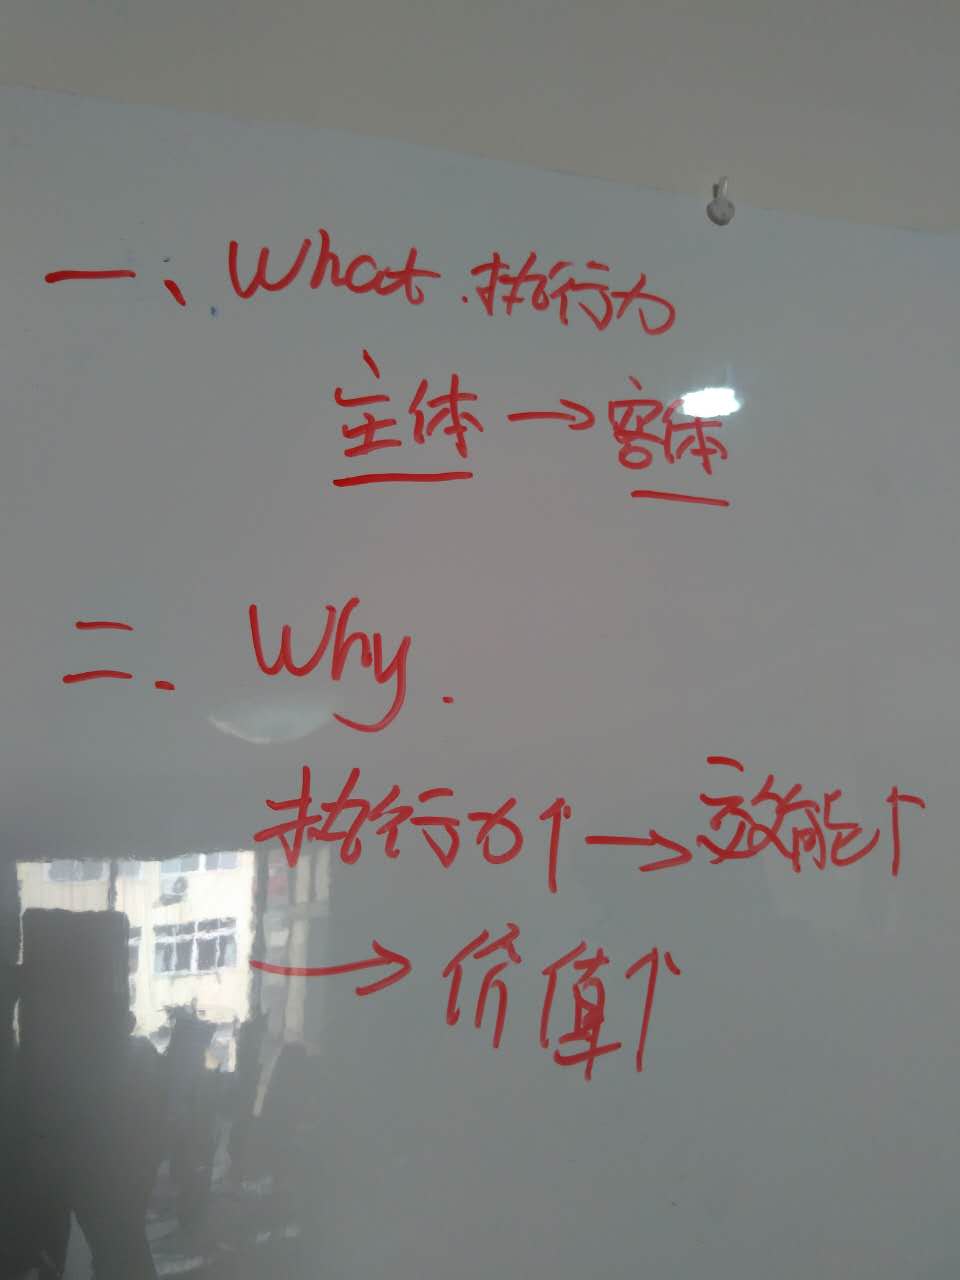 一、What.执行力
主体→客体
二.Why.
执行力↑→效能↑
→价值↑